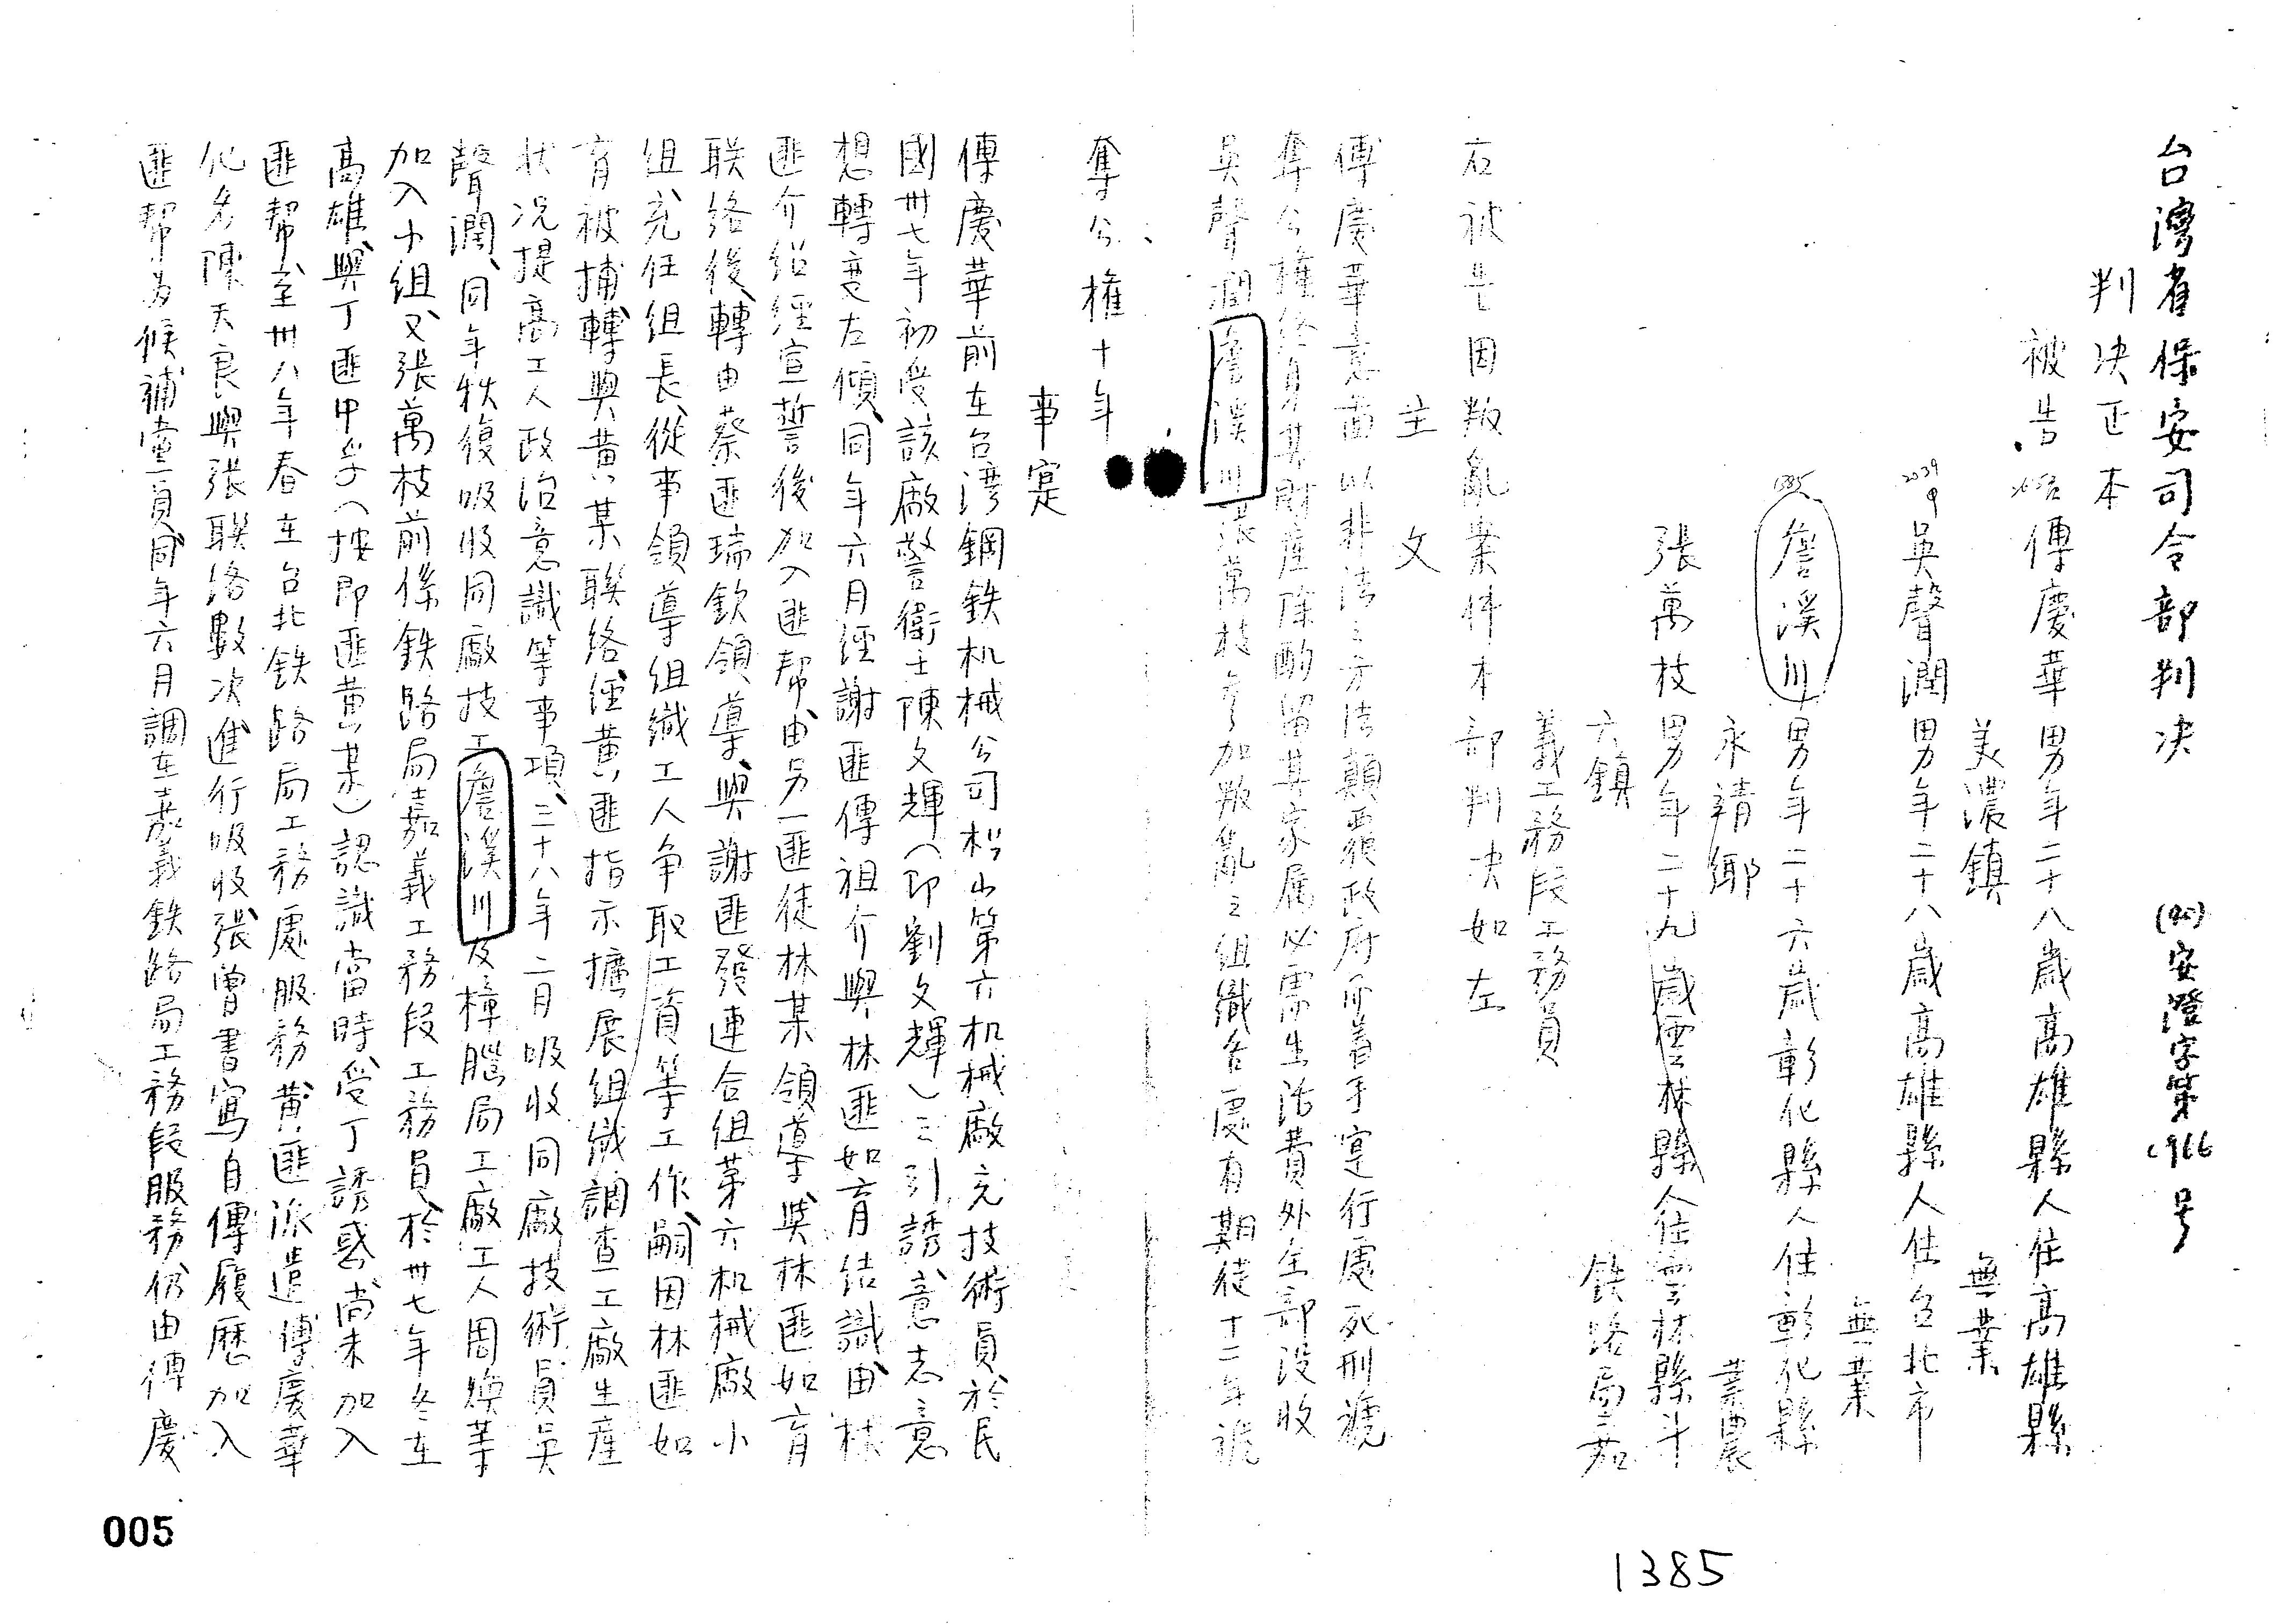 台灣省保安司令部判决
安澄字第
号
判决正本
被告
傅慶華男年二十八歲高雄縣人住高雄縣
美濃鎮
無業
2039
吳聲潤男年二十八歲高雄縣人住台北市
無業
1385
詹溪川男年二十六歲彰化縣人住彰化縣
永靖鄉
業農
張萬枝男年二十九歲雲林縣人住雲林縣斗
六鎮
鉄路局嘉
義工務段工務員
右被告因叛亂案件本部判决如左
主文
傅慶華意啚以非法之方法顛覆政府而着手寔行處死刑褫
奪公權終身其財產除酌留其家属必需生活費外全部没收
吳聲潤詹溪川張萬枝参加叛亂之組織各處有期徒十二年褫
奪公權十年
事寔
傅慶華前在台湾鋼鉄机械公司松山第六机械廠充技術員於民
國卅七年初受該廠警衛士陳文輝(即劉文輝)之引誘意志意
想轉變左傾同年六月經謝匪傳祖介與林匪如育結識由林
匪介紹經宣誓後加入匪帮由另一匪徒林某領導與林匪如育
联絡後轉由蔡匪瑞欽領導與謝匪發連合組苐六机械廠小
組充任組長從事領導組織工人争取工資等工作嗣因林匪如
育被捕轉與黄某聯絡經黄匪指示擴展組織調查工廠生產
状况提高工人政治意識等事項三十八年二月吸收同廠技術員吳
聲潤同年秋復吸收同廠技工詹溪川及樟腦局工廠工人周煥華
加入小組又張萬枝前係鉄路局嘉義工務段工務員於卅七年冬在
高雄與丁匪甲乎(按即匪黄某)認識當時受丁誘惑尚未加入
匪帮至卅八年春在台北鉄路局工務處服務黄匪派遣傅慶華
化名陳天良與張聯络數次進行吸收張曾書寫自傳履歷加入
匪帮为候補黨員同年六月調在嘉義鉄路局工務段服務仍由傅慶
005
1385